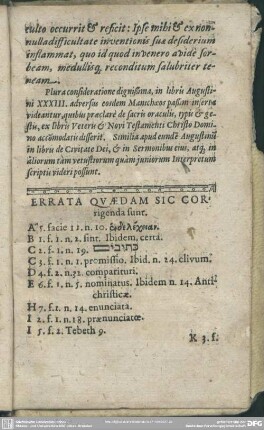 culto occurrit & reficit: Ipse mihi & ex non-
nulla difficultate inventionis sua desiderium
inflammat, quo id quod invenero avidè sor-
beam, medullisq́, reconditum salubriter te-
neam.
Plura consideratione dignissima, in libris Augusti-
ni XXXIII. adversus eosdem Manichæos passim inserta
videantur, quibus præclarè de sacris oraculis, typis &
gestis, ex libris Veteris & Novi Testamenti Christo Domi-
no accõmodatis disserit. Similia apud eundẽ Augustinũ
in libris de Civitate Dei, & in Sermonibus eius, atq́, in
aliorum tàm vetustiorum quàm juniorum Interpretum
scriptis videri possunt.
ERRATA QVÆDAM SIC COR-
rigenda sunt.
A f. facie 11. n. 10.
B 1. f. 1. n. 2. sint. Ibidem, certa.
C 2. f. 1. n. 19.
C 3. f. 1. n. 1. promissio. Ibid. n. 24. clivum.
D 4. f. 2. n. 32. compatituri.
E 6. f. 1. n. 5. nominatus. Ibidem n. 14. Anti-
christicæ.
H 7. f. 1. n. 14. enunciata.
I 2. f. 1. n. 18. prænunciatæ.
I 5. f. 2. Tebeth 9.
K 3. f.